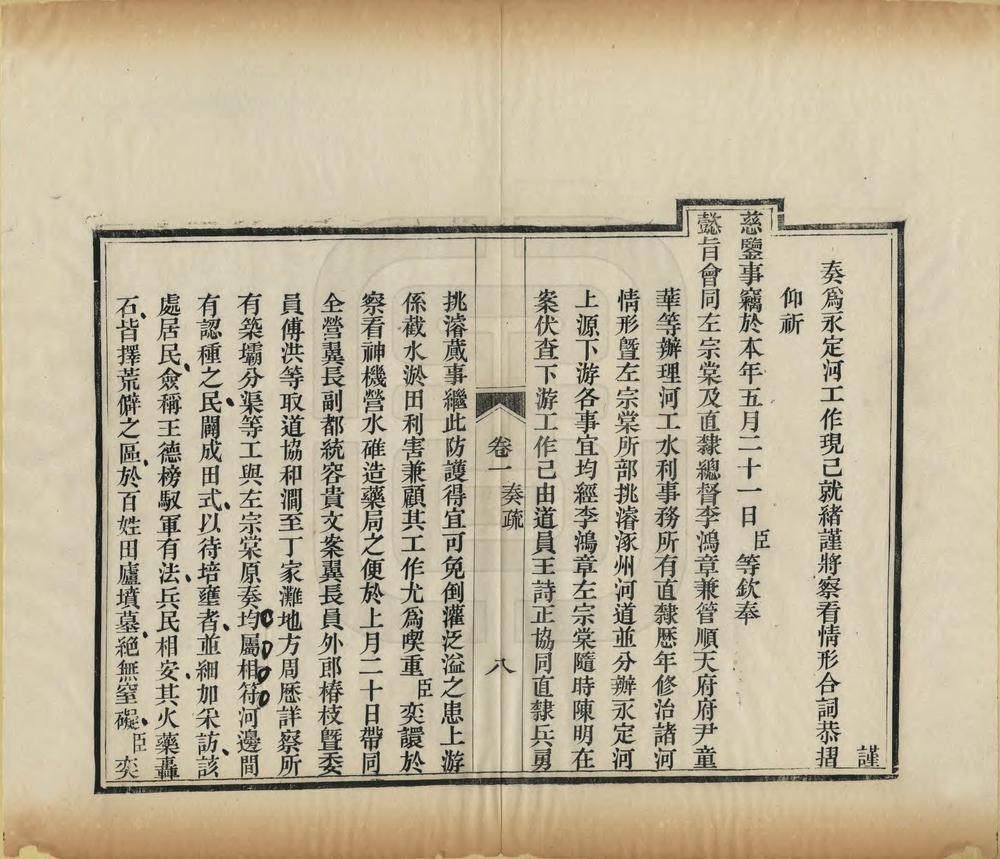 謹
奏爲永定河工作現已就緒謹將察看情形合詞恭摺
仰祈
慈鑒事竊於本年五月二十一日臣等欽奉
懿旨會同左宗棠及直隸總督李鴻章兼管順天府府尹童
華等辦理河工水利事務所有直隸歷年修治諸河
情形曁左宗棠所部挑濬涿州河道並分辦永定河
上源下游各事宜均經李鴻章左宗棠隨時陳明在
案伏查下游工作已由道員王詩正協同直隸兵勇
卷一 奏疏 八
挑濬蕆事繼此防護得宜可免倒灌泛溢之患上游
係截水淤田利害兼顧其工作尤爲喫重臣奕譞於
察看神機營水碓造藥局之便於上月二十日帶同
全營翼長副都統容貴文案翼長員外郎椿枝曁委
員傅洪等取道協和澗至丁家灘地方周歷詳察所
有築壩分渠等工與左宗棠原奏均屬相符河邊間
有認種之民闢成田式以待培壅者並細加采訪該
處居民僉稱王德榜馭軍有法兵民相安其火藥轟
石皆擇荒僻之區於百姓田廬墳墓絕無窒礙臣奕